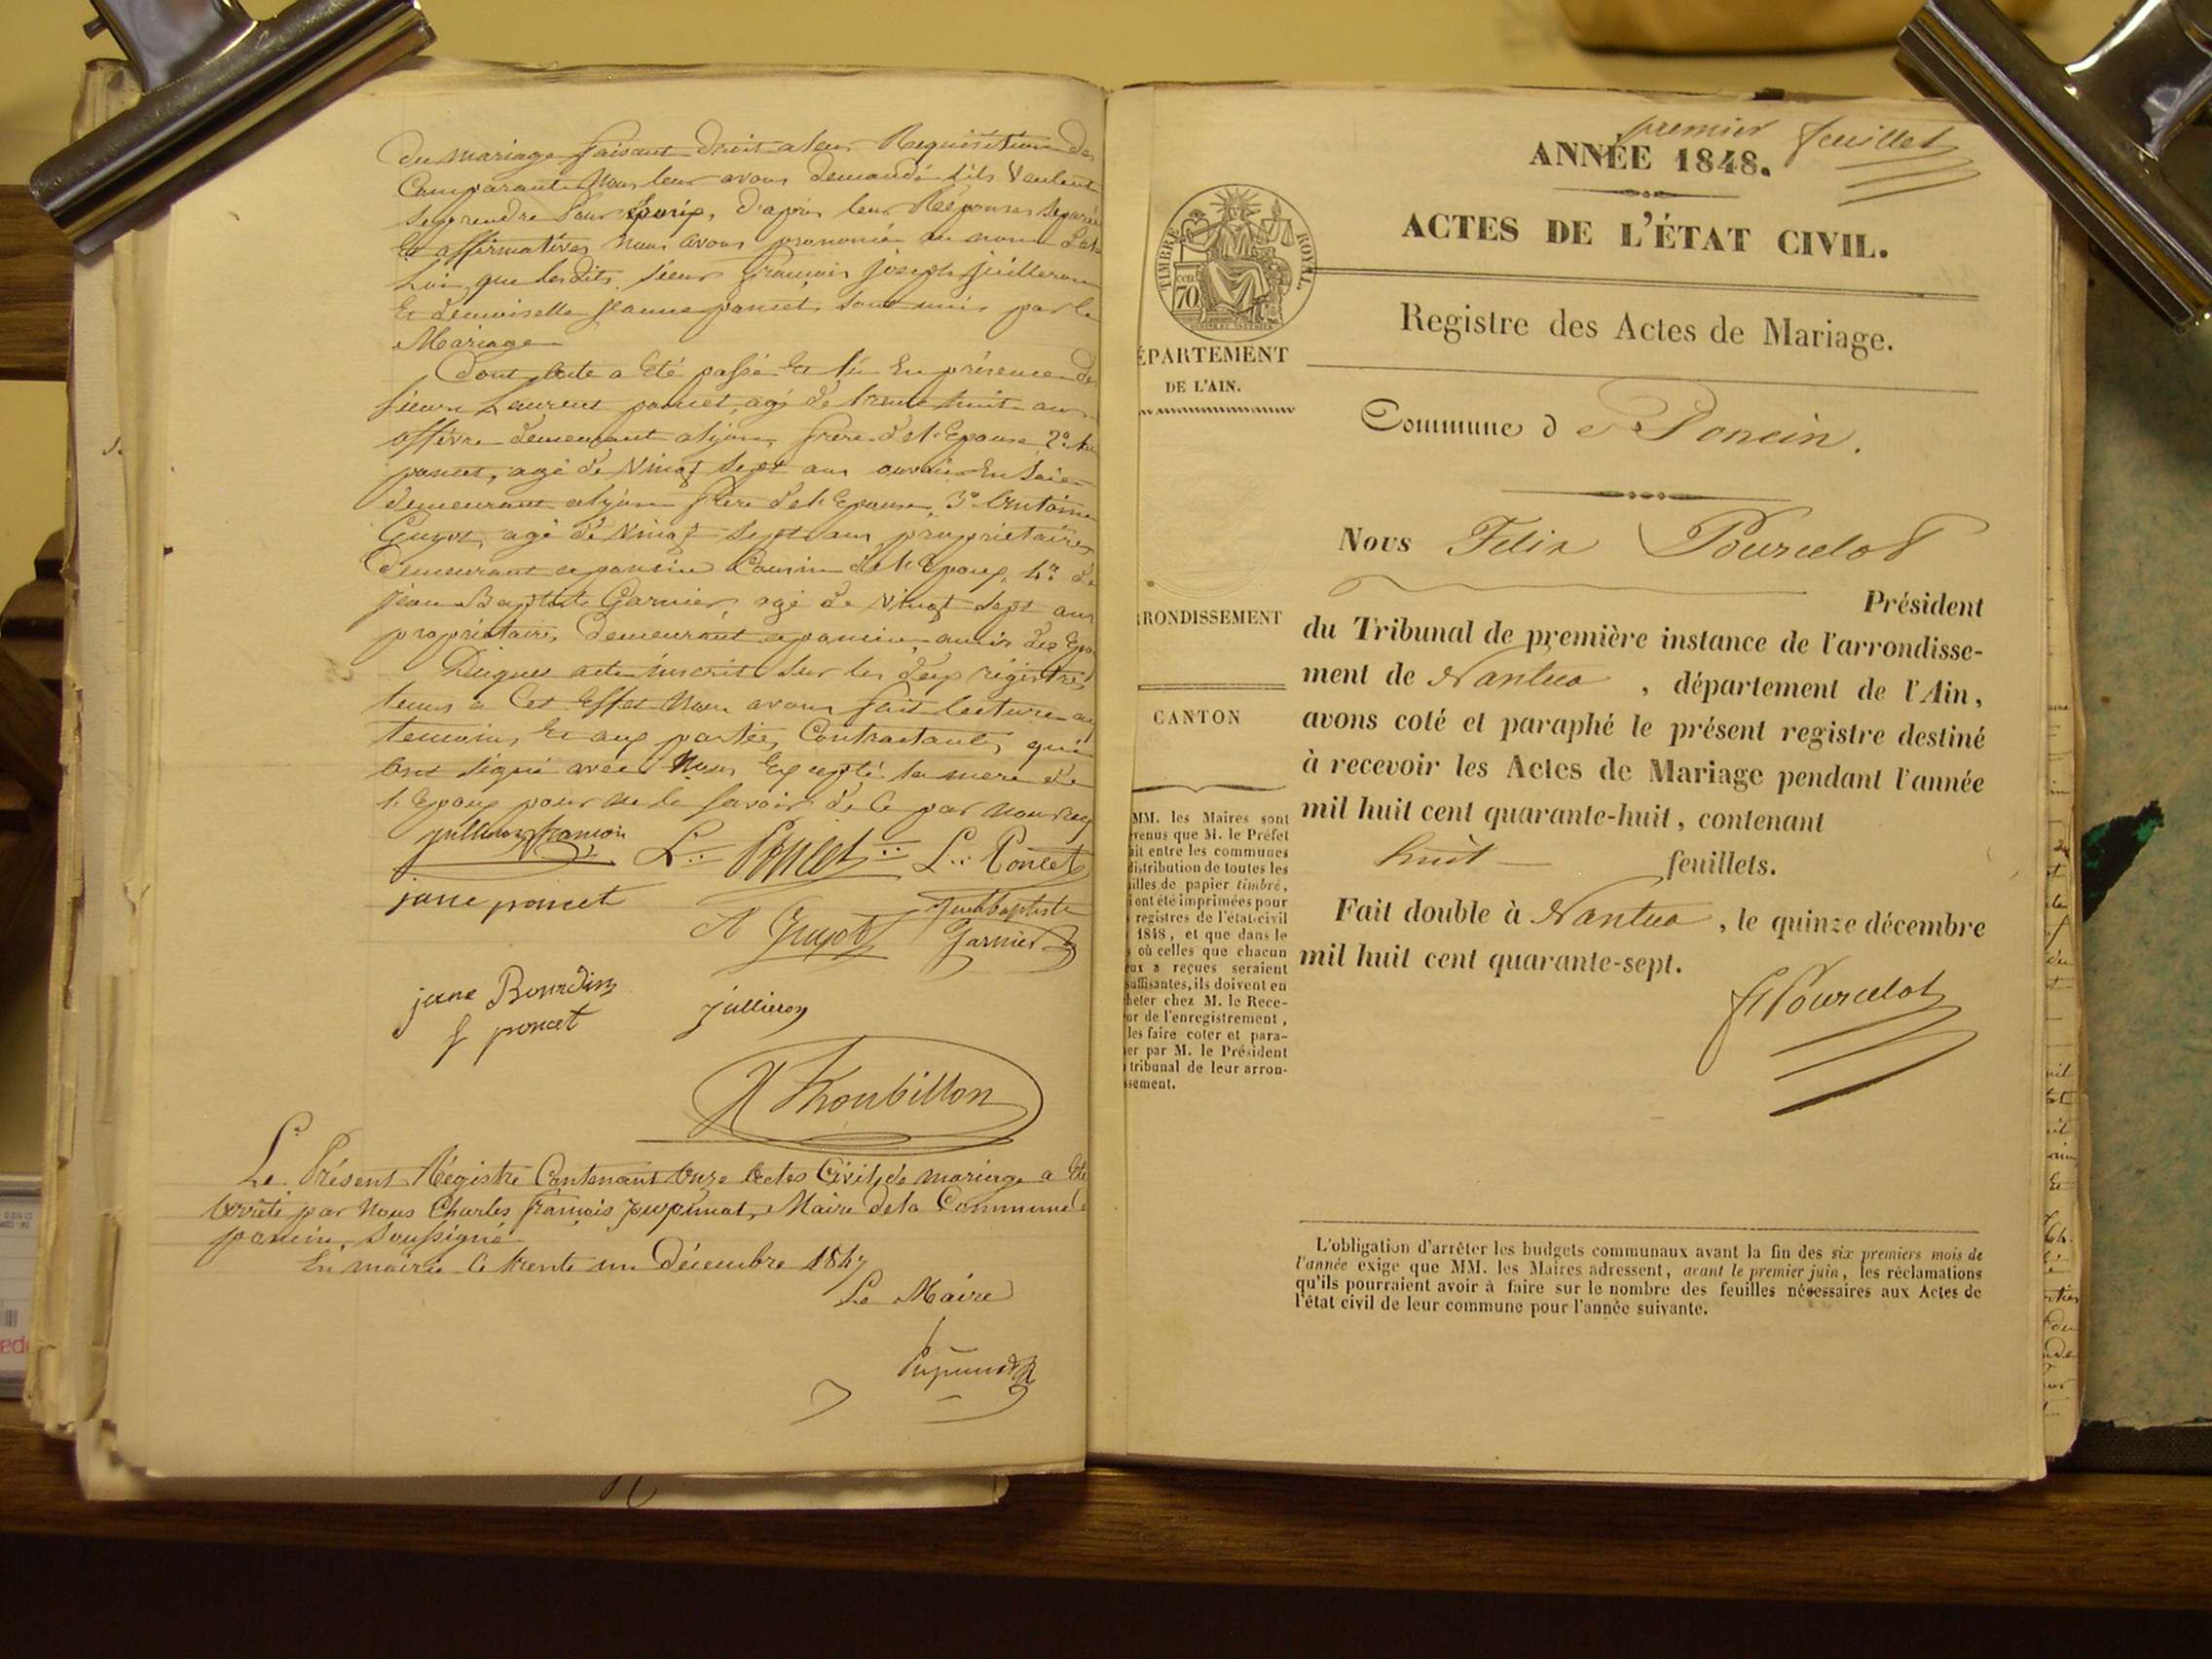 du mariage faisant droit a leur Requisition des
Comparants Nous leur avons demandé s'ils Veulent
se prendre Pour Epoux, d'après leur Réponses séparées
Et affirmatives nous avons prononcé au nom de la
Loi que lesdits sieur françois joseph juilleron
Et demoiselle jeanne poncet sont unis par le
Mariage
Dont acte a Eté passé Et lu En présence des
sieurs Laurent poncet, agé de trente huit ans
demeurant a lyon, frère de l'Epouse, 2º
poncet, agé de Vingt Sept ans ouvrier En Soie
demeurant a lyon frère de l'Epouse, 3º Antoine
Guyot, agé de Vingt Sept ans propriétaire
demeurant a poncin Cousin de l'Epoux, 4º de
jean Baptiste Garnier, agé de Vingt Sept ans
propriétaire, demeurant a poncin, amis des Epo
Duquel acte inscrit Sur les deux régistres
tenus a Cet Effet Nous avons fait lecture au
temoins, Et aux parties Contractants, qui
ont signé avec Nous Excepté la mere de
l'Epoux pour ne le savoir de Ce par nous
juilleron françois
L. Poncet L. Poncet
jane poncet
A Guyot jeanbaptiste
Garnier
jane Bourdin
f poncet
juilleron
Thoubillon
Le Présent Régistre Contenant Onze Actes Civils de mariage a Eté
Arrêté par Nous Charles françois pupunat, Maire de la Commune de
poncin, Soussigné
En mairie le trente un Décembre 1847
Le Maire
Pupunat
premier feuillet
ANNÉE 1848.
ACTES DE L'ÉTAT CIVIL.
TIMBRE ROYAL.
cen
70
Registre des Actes de Mariage.
ÉPARTEMENT
DE L'AIN.
Commune de Poncin.
Nous Felix Pourcelot
Président
RONDISSEMENT
du Tribunal de première instance de l'arrondisse-
ment de Nantua, département de l'Ain,
CANTON
avons coté et paraphé le présent registre destiné
à recevoir les Actes de Mariage pendant l'année
mil huit cent quarante-huit, contenant
huit feuillets.
Fait double à Nantua, le quinze décembre
mil huit cent quarante-sept.
f Pourcelot
MM. les Maires sont
venus que M. le Préfet
ait entre les communes
distribution de toutes les
illes de papier timbré,
i ont été imprimées pour
registres de l'état-civil
1848, et que dans le
où celles que chacun
eux a reçues seraient
suffisantes, ils doivent en
heter chez M. le Rece-
ur de l'enregistrement,
les faire coter et para-
er par M. le Président
tribunal de leur arron-
ssement.
L'obligation d'arrêter les budgets communaux avant la fin des six premiers mois de
l'année exige que MM. les Maires adressent, avant le premier juin, les réclamations
qu'ils pourraient avoir à faire sur le nombre des feuilles nécessaires aux Actes de
l'état civil de leur commune pour l'année suivante.